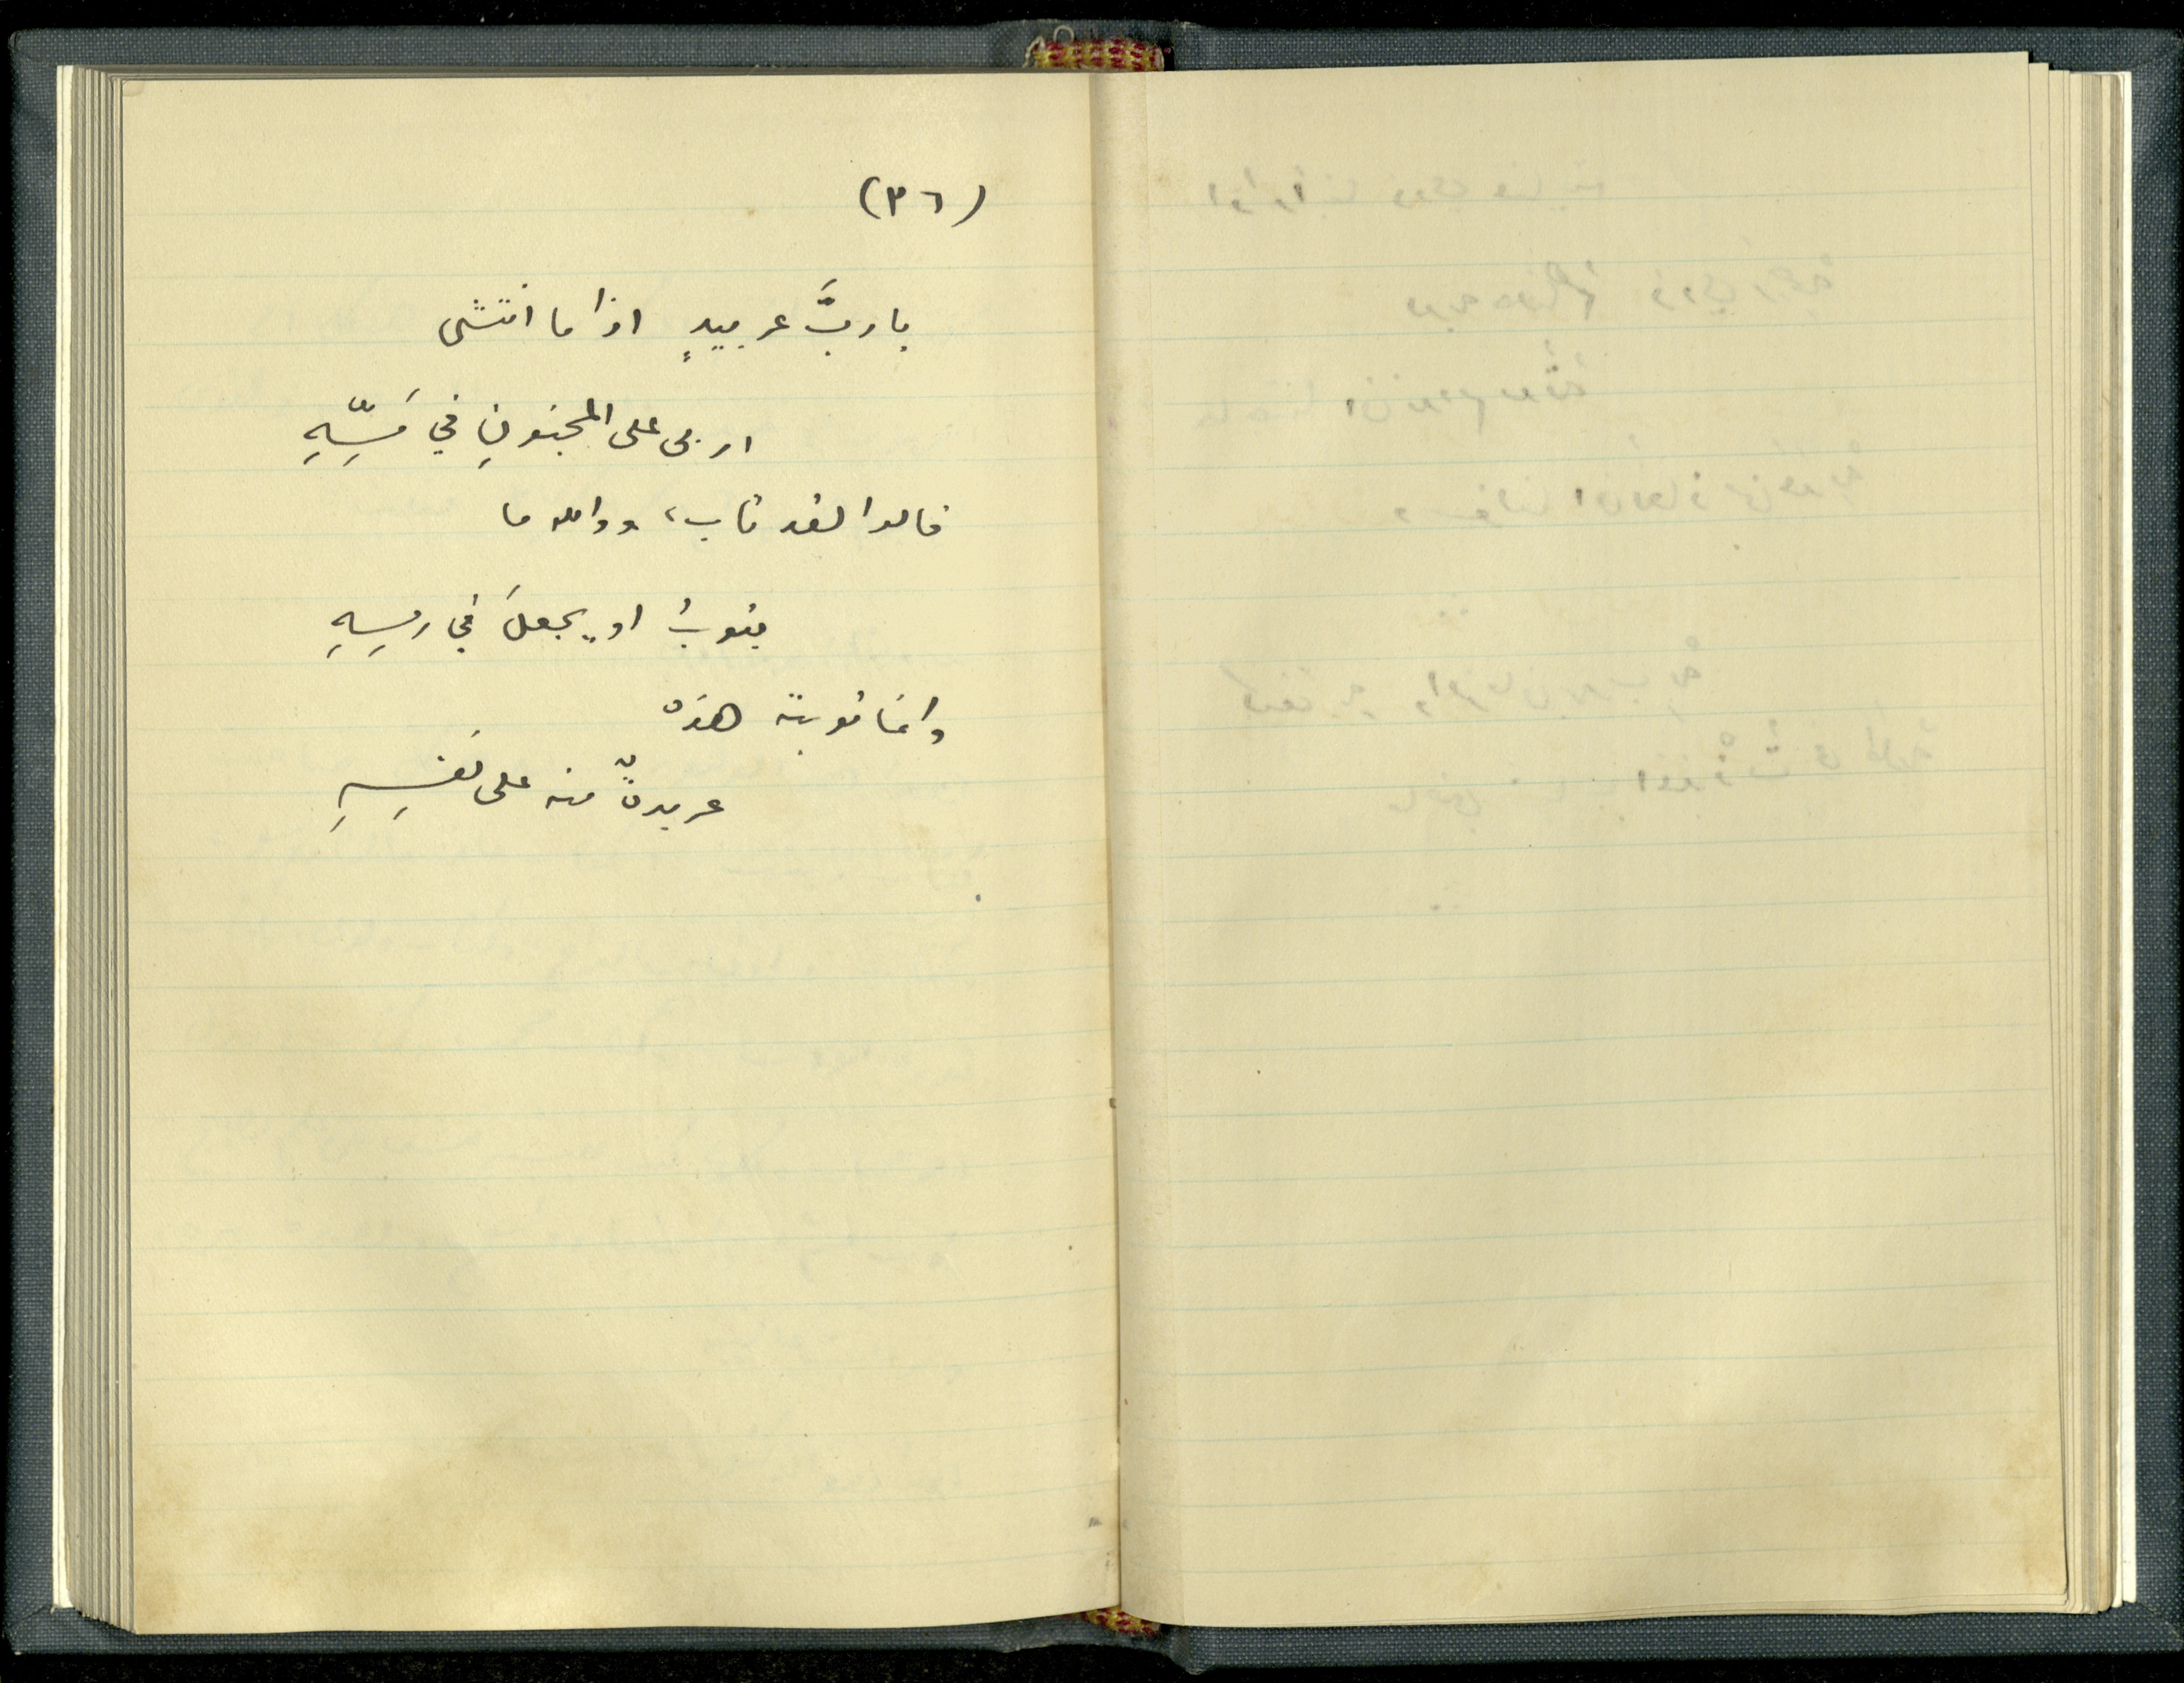 (٣٦)
يا ربَّ عربيدٍ اذا ما انتشى
اربى على المجنونِ في مَسِّهِ
قالوا لقد تاب، ووالله ما
يتوبُ او يجعلَ في رمسِهِ
وانما توبته هذه
عربدةٌ منه على نفسِهِ